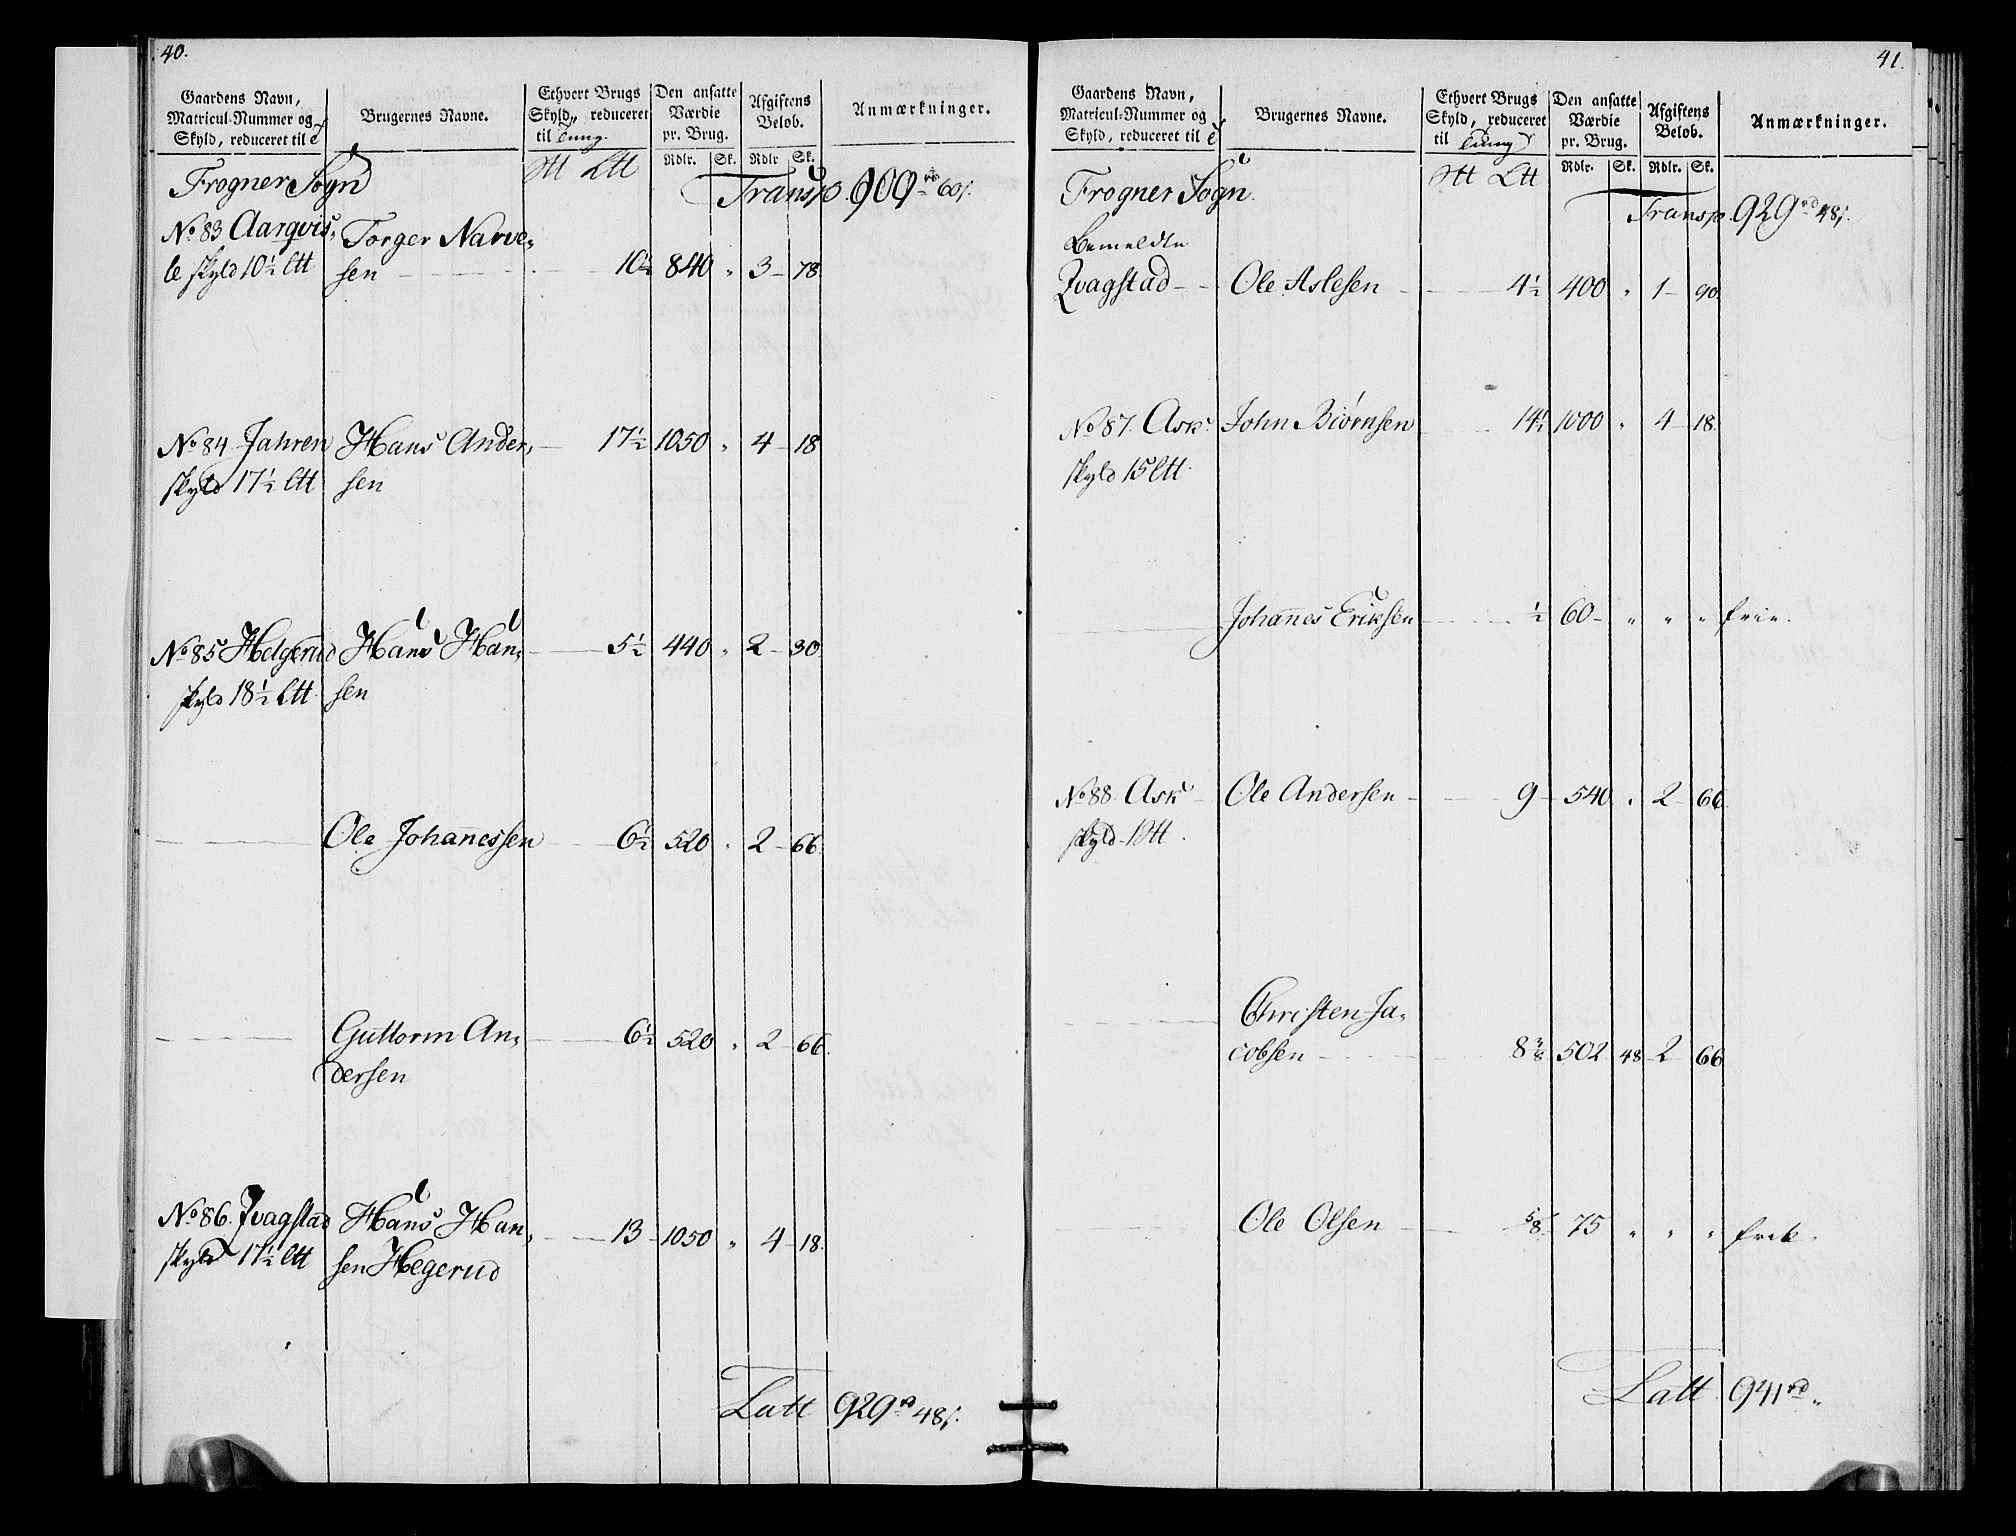 40.
Gaardens Navn,
Matricul-Nummer og
Skyld, reduceret til
Brugernes Navne.
Ethvert Brugs
Skyld, reduceret
til Tung
Den ansatte
Værdie
pr. Brug.
Afgiftens
Beløb.
Anmærkninger.
Rdlr. Sk. Rdlr Sk.
Frogner Sogn
Transp. 909 rd 60 s.
No 83 Aarqvis- Torger Narve- 10½ 840 " 3 - 78.
le skyld 10½ Ltt sen
No 84 Jahren Hans Ander- 17½ 1050 " 4 - 18
skyld 17½ Ltt sen
No 85 Helgerud Hans Han- 5½ 440 " 2 - 30.
skyld 18½ Ltt. sen
Ole Johanessen 6½ 520 " 2 - 66.
Guttorm An- 6½ 520 " 2 - 66.
dersen
No 86. Qvagstad Hans Han- 13 - 1050 " 4 - 18.
skyld 17½ Ltt sen Hegerud
Latt 929 rd 48 s.
41.
Gaardens Navn,
Matricul-Nummer og
Skyld, reduceret til
Brugernes Navne.
Ethvert Brugs
Skyld, reduceret
til Tung
Den ansatte
Værdie
pr. Brug.
Afgiftens
Beløb.
Anmærkninger.
Rdlr. Sk. Rdlr. Sk.
Frogner Sogn.
Transp. 929 rd 48 s.
Bemeldte
Qvagstad - - Ole Aslesen 4½ 400 " 1 - 90.
No 87. Ask. John Biørnsen 14½ 1000 " 4 - 18.
skyld 15 Ltt.
Johannes Eriksen ½ 60 - " " " frie.
No 88. Ask - Ole Andersen - 9 - 540 " 2 - 66.
skyld - 1 Stt.
Christen Ja-
cobsen 8⅜ 502 48 2 - 66
Ole Olsen ⅝ 75 " " " frie.
Latt. 941 rd "